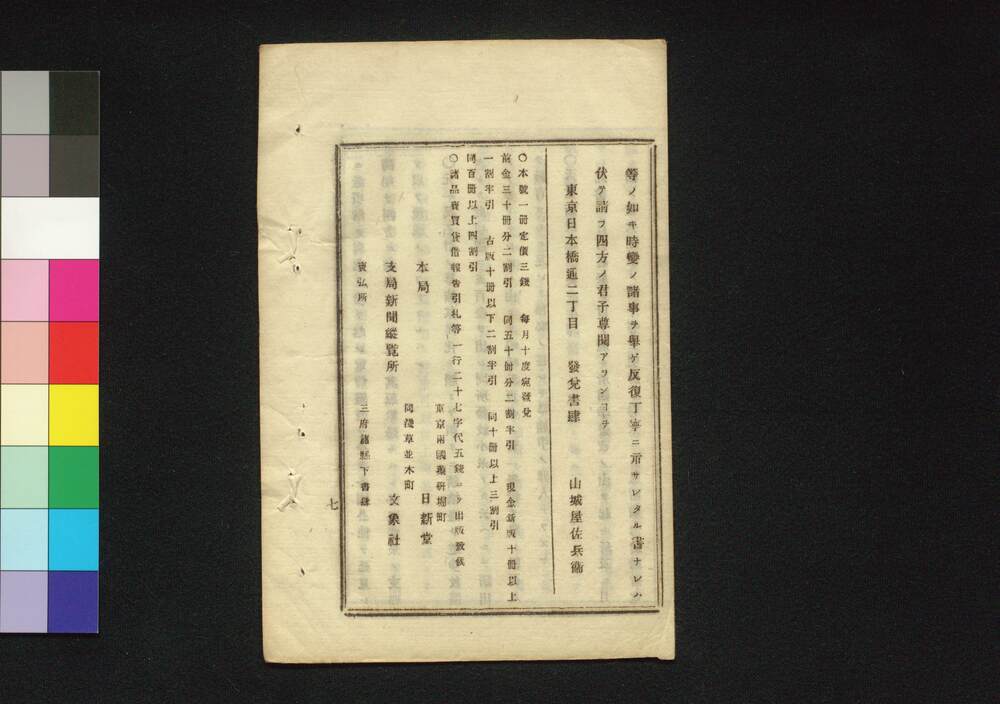 等ノ如キ時變ノ諸事ヲ擧ゲ反復丁寧ニ示サレタル書ナレバ
伏テ請フ四方ノ君子尊閲アランコヲ
東京日本橋通二丁目 發兌書肆 山城屋佐兵衞
○本號一册定價三錢 毎月十度宛發兌
前金三十册分二割引 同五十册分二割半引 現金新版十册以上
一割半引 古版十册以下二割半引 同十册以上三割引
同百册以上四割引
○諸品賣買貸借報告引札等一行二十七字代五錢ニテ出版致候
東京兩國藥研堀町
本局 日新堂
同淺草並木町
支局新聞縱覧所 文象社
賣弘所 三府諸縣下書肆
七